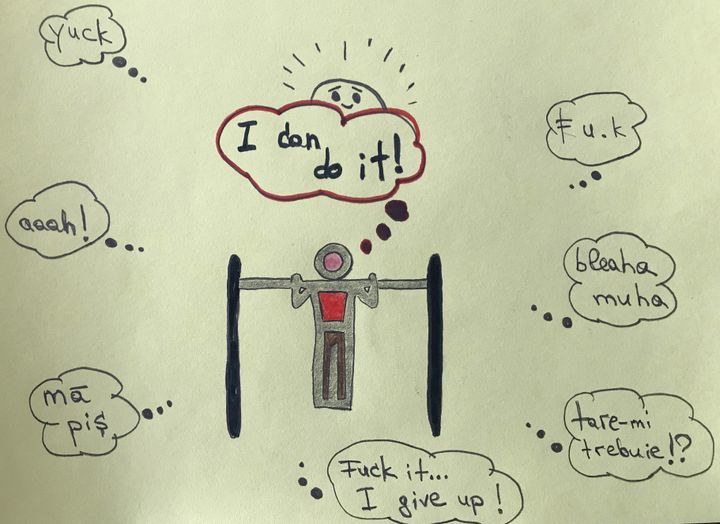 yuck
I can
do it!
Fu.k
aaah!
bleaha
muha
mă
piș
tare-mi
trebuie!?
Fuck it...
I give up!